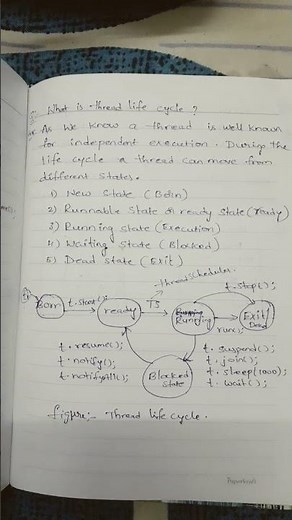 What is thread life cycle ?
As we know a thread is well known
for independent execution. During the
life cycle a thread can move from
different states.
1) New State (Born)
2) Runnable State or ready state (ready)
3) Running state (Execution)
4) Waiting State (Blocked)
5) Dead state (Exit)
thread scheduler
t.stop();
Born
t.start();
ready
TS
Running
Exit/
Dead
run();
t.resume();
t.notify();
t.notifyAll();
Blocked
State
t.suspend();
t.join();
t.sleep(1000);
t.wait();
figure:- Thread life cycle.